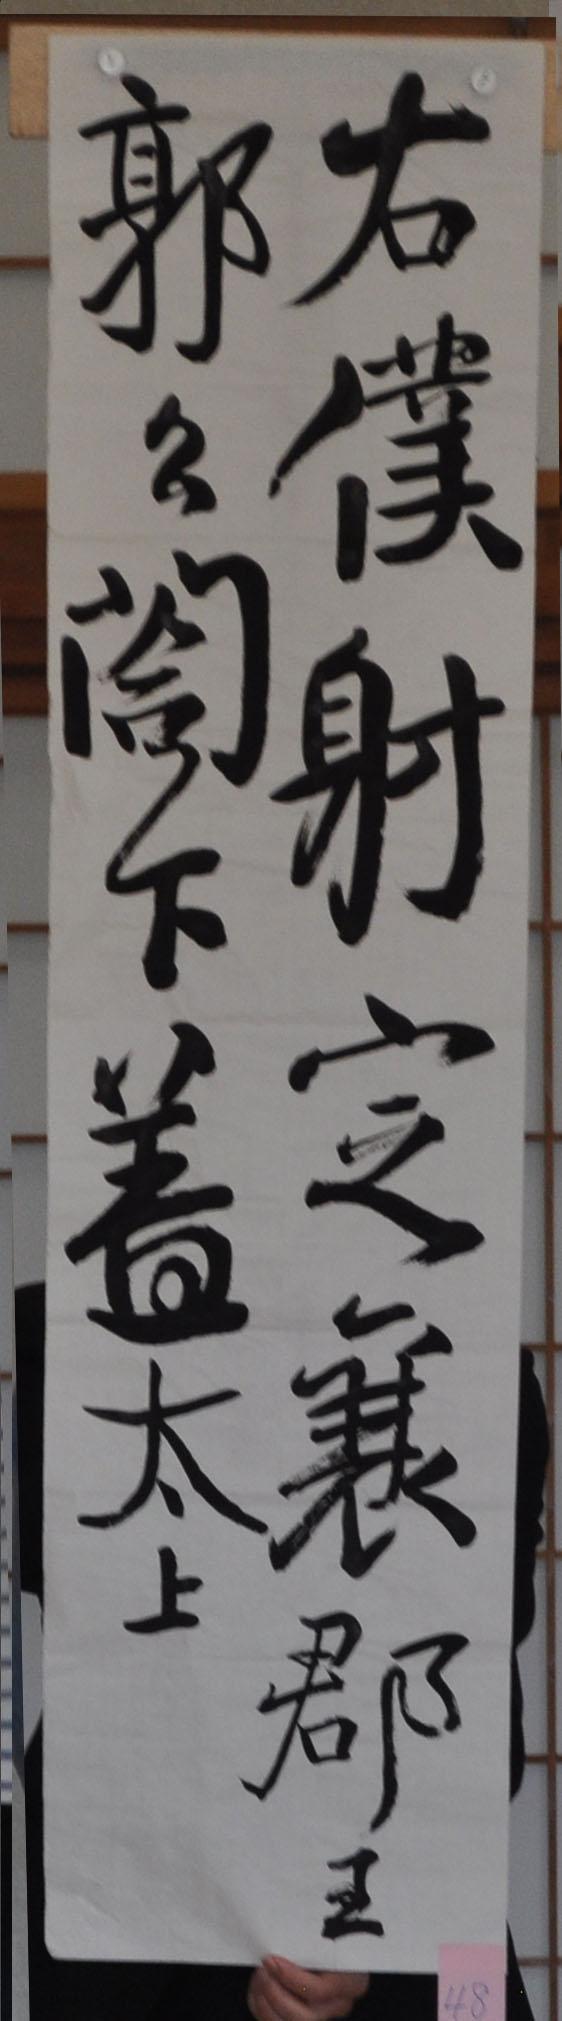 右僕射定襄郡王
郭公閤下蓋太上
48